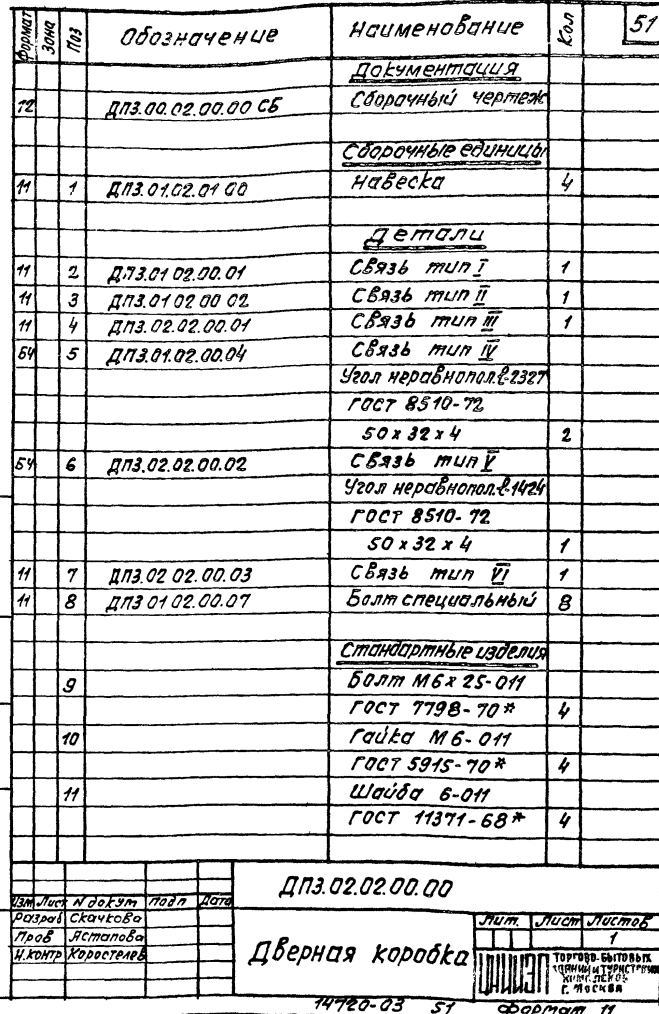 Формат Зона Поз Обозначение Наименование Кол 51
Документация
12 ДПЗ.00.02.00.00 СБ Сборочный чертеж
Сборочные единицы
11 1 ДПЗ.01.02.01 00 Навеска 4
Детали
11 2 ДПЗ.01 02.00.01 Связь тип I 1
11 3 ДПЗ.01 02 00 02 Связь тип II 1
11 4 ДПЗ.02.02.00.01 Связь тип III 1
БЧ 5 ДПЗ.01.02.00.04 Связь тип IV
Угол неравнопол. ℓ-2327
ГОСТ 8510-72
50 х 32 х 4 2
БЧ 6 ДПЗ.02.02.00.02 Связь тип V
Угол неравнопол. ℓ-1424
ГОСТ 8510-72
50 х 32 х 4 1
11 7 ДПЗ.02 02.00.03 Связь тип VI 1
11 8 ДПЗ 01 02.00.07 Болт специальный 8
Стандартные изделия
9 Болт М6х 25-011
ГОСТ 7798-70* 4
10 Гайка М 6-011
ГОСТ 5915-70* 4
11 Шайба 6-011
ГОСТ 11371-68* 4
ДПЗ.02.02.00.00
Изм Лист N докум подп Дата
Разраб Скачкова
Пров Астапова
Н.контр Коростелев
Дверная коробка
Лит. Лист Листов
1
ЦНИИЭП торгово-бытовых
зданий и туристских
комплексов
г. Москва
14720-03 51 Формат 11